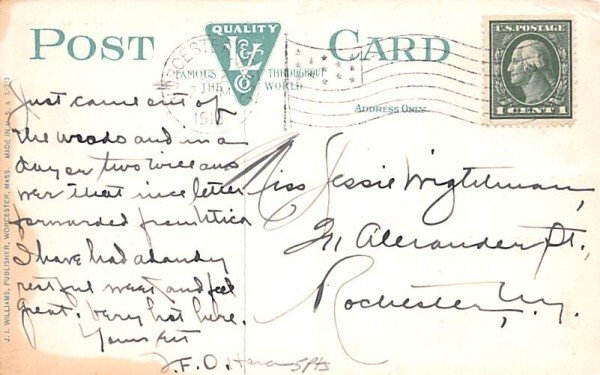 POST CARD
QUALITY
L&Z
CO
FAMOUS THROUGHOUT
THE WORLD
ADDRESS ONLY
U.S. POSTAGE
1 CENT 1
Just came out of
the woods and in a
day or two will ans
wer that nice letter
forwarded from Utica
I have had a dandy
restful week and feel
great. Very hot here.
Yours ett
J. F. O.
Miss Jessie Wigtilman,
Alexander St.,
Rochester, N.Y.
J. I. WILLIAMS, PUBLISHER, WORCESTER, MASS. MADE IN U. S. A.